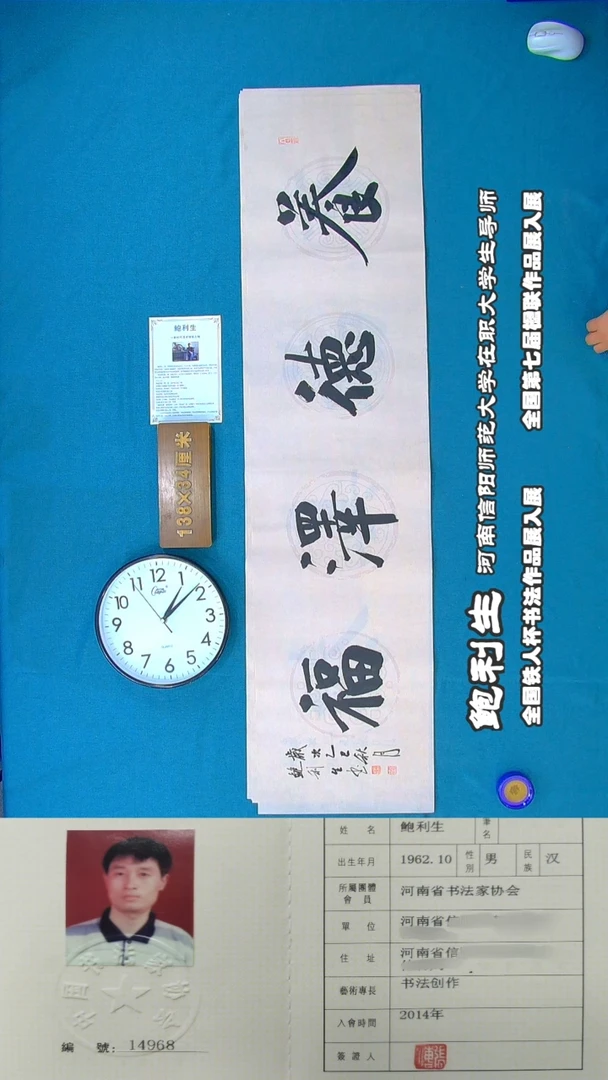 養德澤福
歲次乙巳秋月
鮑利生書
鲍利生
138×34厘米
12
1
2
3
4
5
6
7
8
9
10
11
鲍利生 河南信阳师范大学在职大学生导师
全国铁人杯书法作品展入展 全国第七届楹联作品展入展
編 號：14968
姓 名 鲍利生 筆名
出生年月 1962.10 性別 男 民族 汉
所屬團體會員 河南省书法家协会
單 位 河南省信
住 址 河南省信
藝術專長 书法创作
入會時間 2014年
簽證人